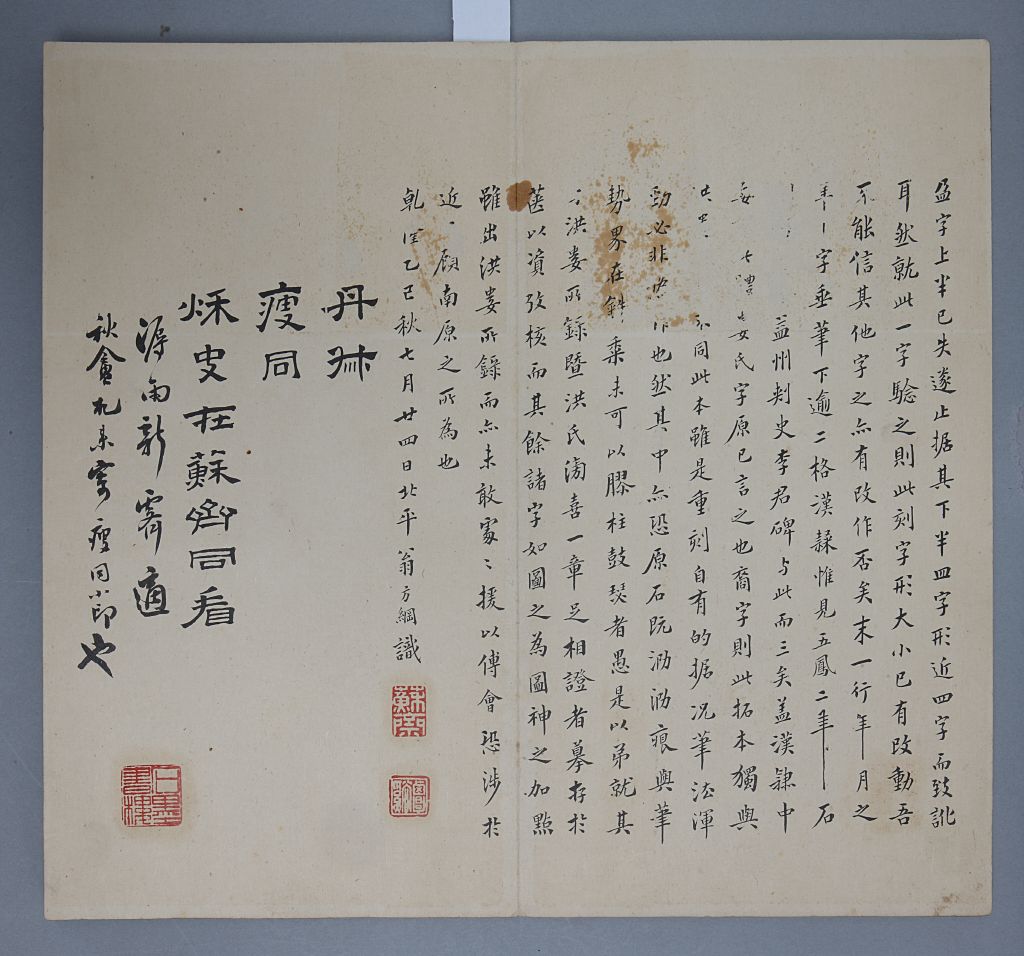 字上半已失遂止据其下半四字形近四字而致訛
耳然就此一字驗之則此刻字形大小已有改動吾
不能信其他字之亦有改作否矣末一行年月之
字垂筆下逾二格漢隸惟見五鳳二年石
益州刺史李君碑与此而三矣盖漢隸中
氏字原已言之也裔字則此拓本獨與
不同此本雖是重刻自有的据况筆法渾
勁必非作也然其中亦恐原石既泐泐痕與筆
勢界在棗未可以膠柱鼓瑟者愚是以弟就其
洪婁所錄暨洪氏一章足相證者摹存於
以資攷核而其餘諸字如圖之為圖神之加點
雖出洪婁所錄而亦未敢処援以傅會恐涉於
近顧南原之所為也
乾乙巳秋七月廿四日北平翁方綱識
丹叔
瘦同
穌史在蘇齋同看
得雨新霽適
秋盦札来寄瘦同小印也